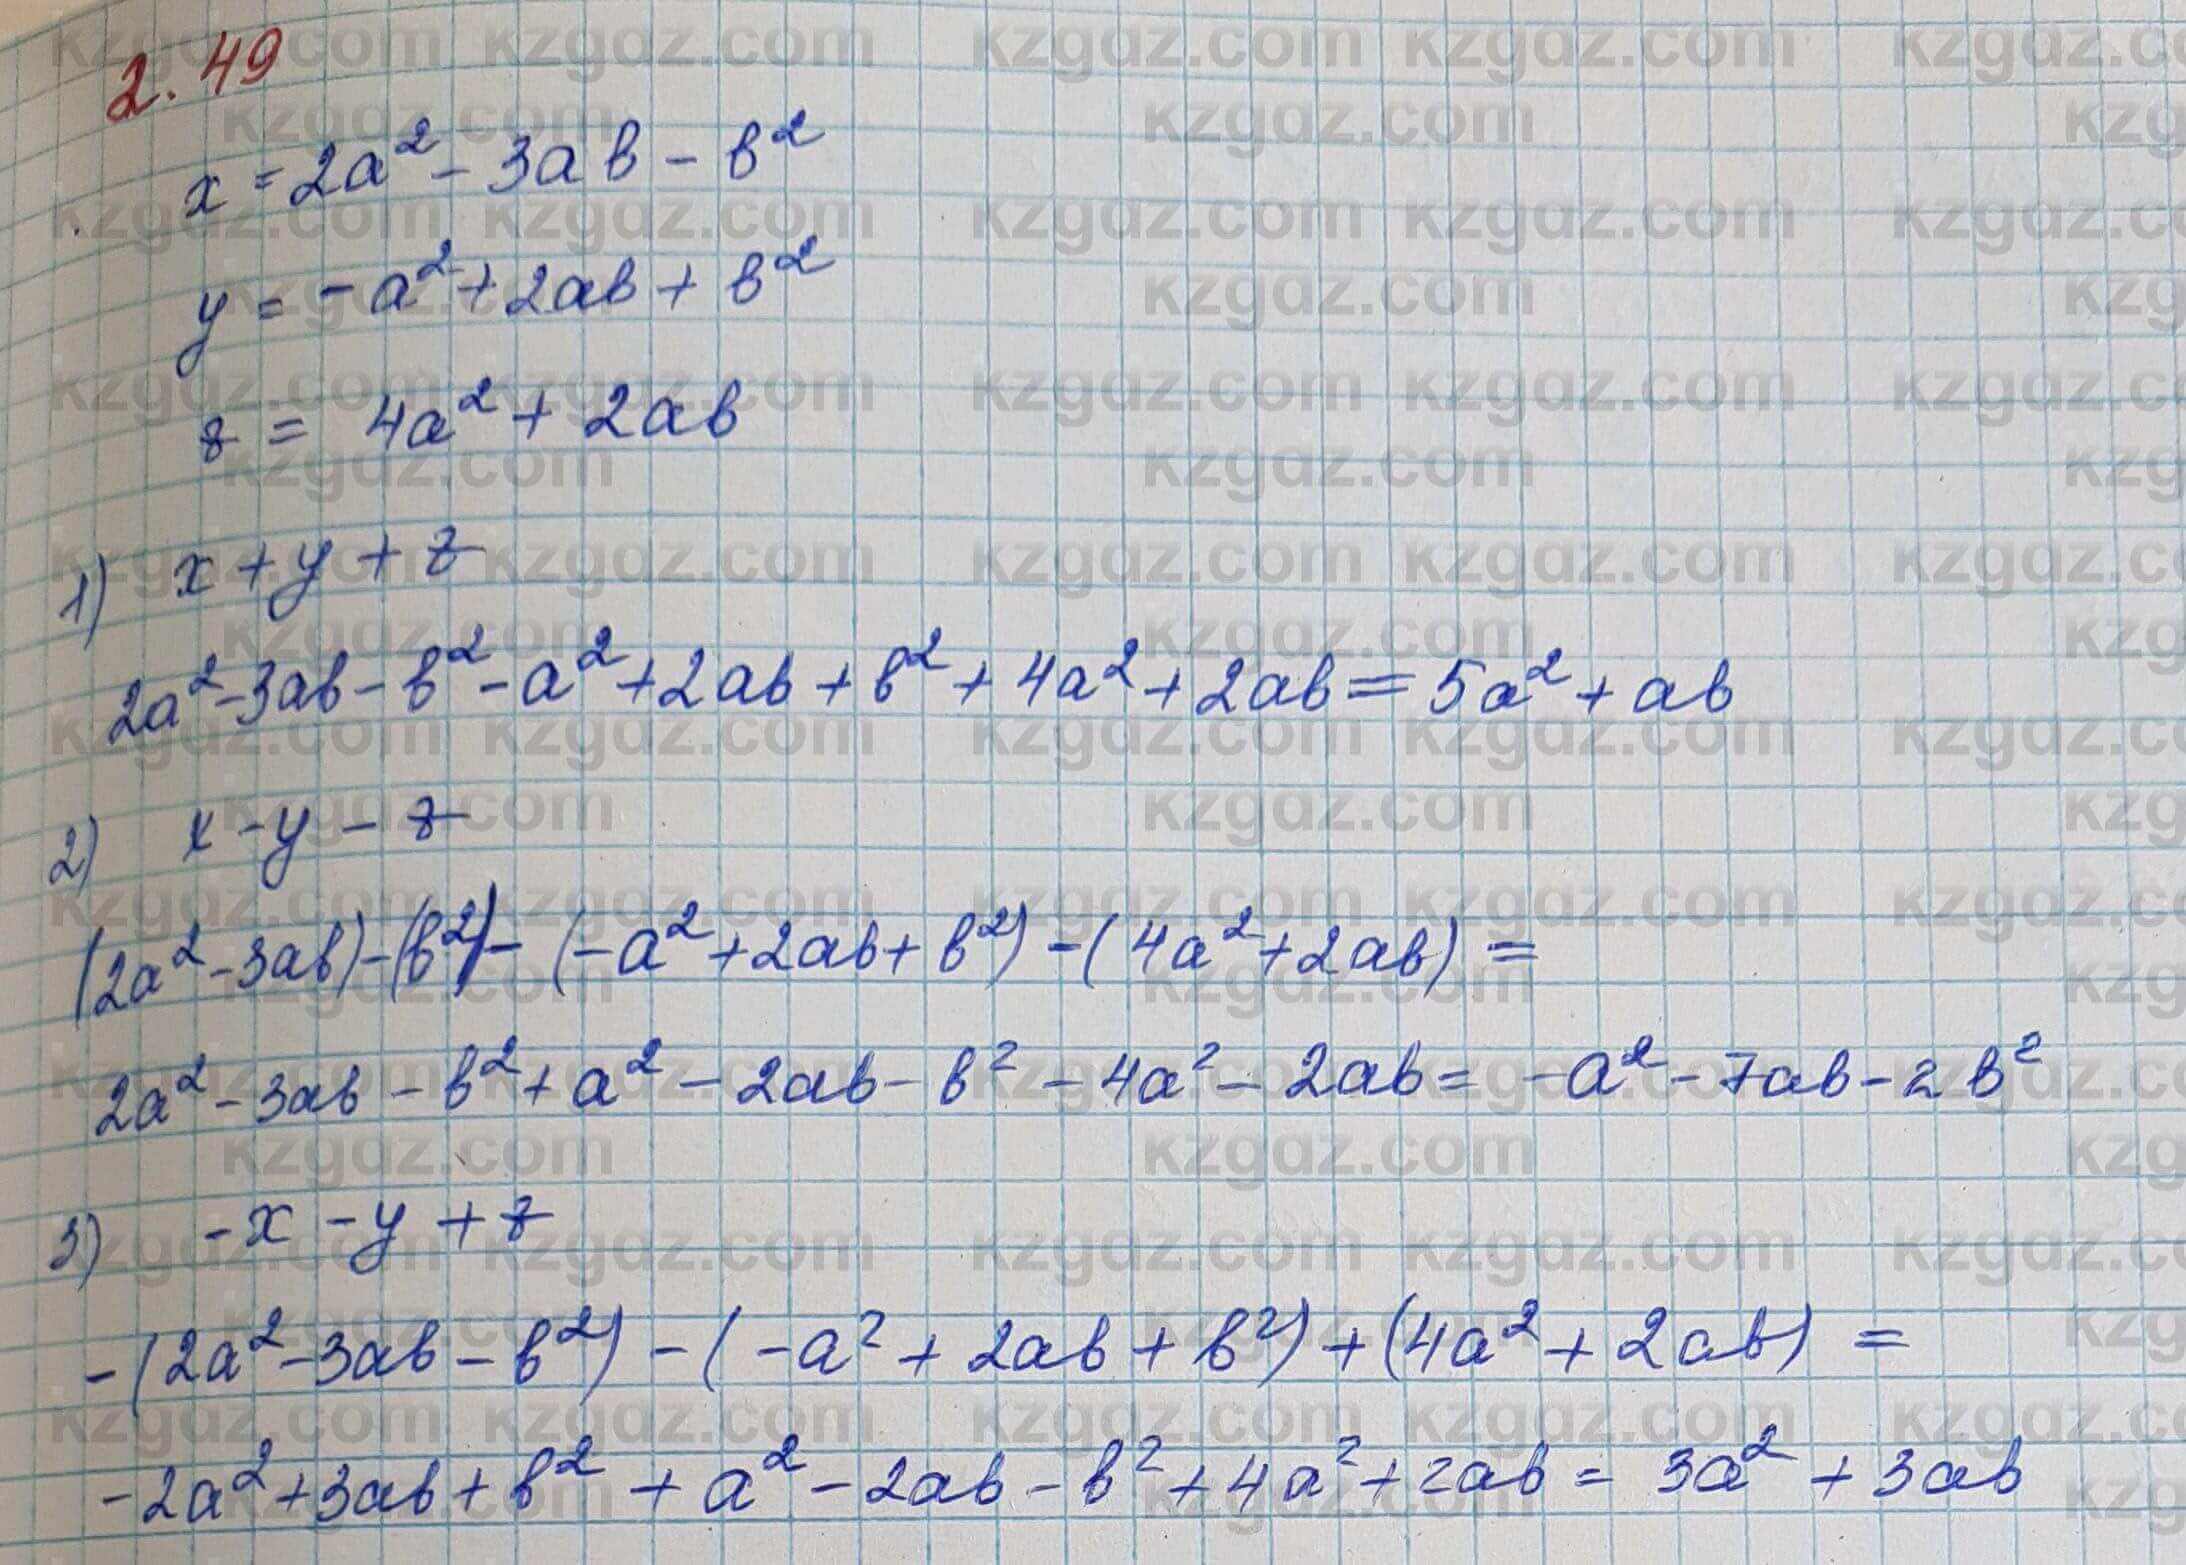 2.49
x = 2a² - 3ab - b²
y = -a² + 2ab + b²
z = 4a² + 2ab
1) x + y + z
2a² - 3ab - b² - a² + 2ab + b² + 4a² + 2ab = 5a² + ab
2) x - y - z
(2a² - 3ab) - (b²) - (-a² + 2ab + b²) - (4a² + 2ab) =
2a² - 3ab - b² + a² - 2ab - b² - 4a² - 2ab = -a² - 7ab - 2b²
3) -x - y + z
-(2a² - 3ab - b²) - (-a² + 2ab + b²) + (4a² + 2ab) =
-2a² + 3ab + b² + a² - 2ab - b² + 4a² + 2ab = 3a² + 3ab
kzgdz.com